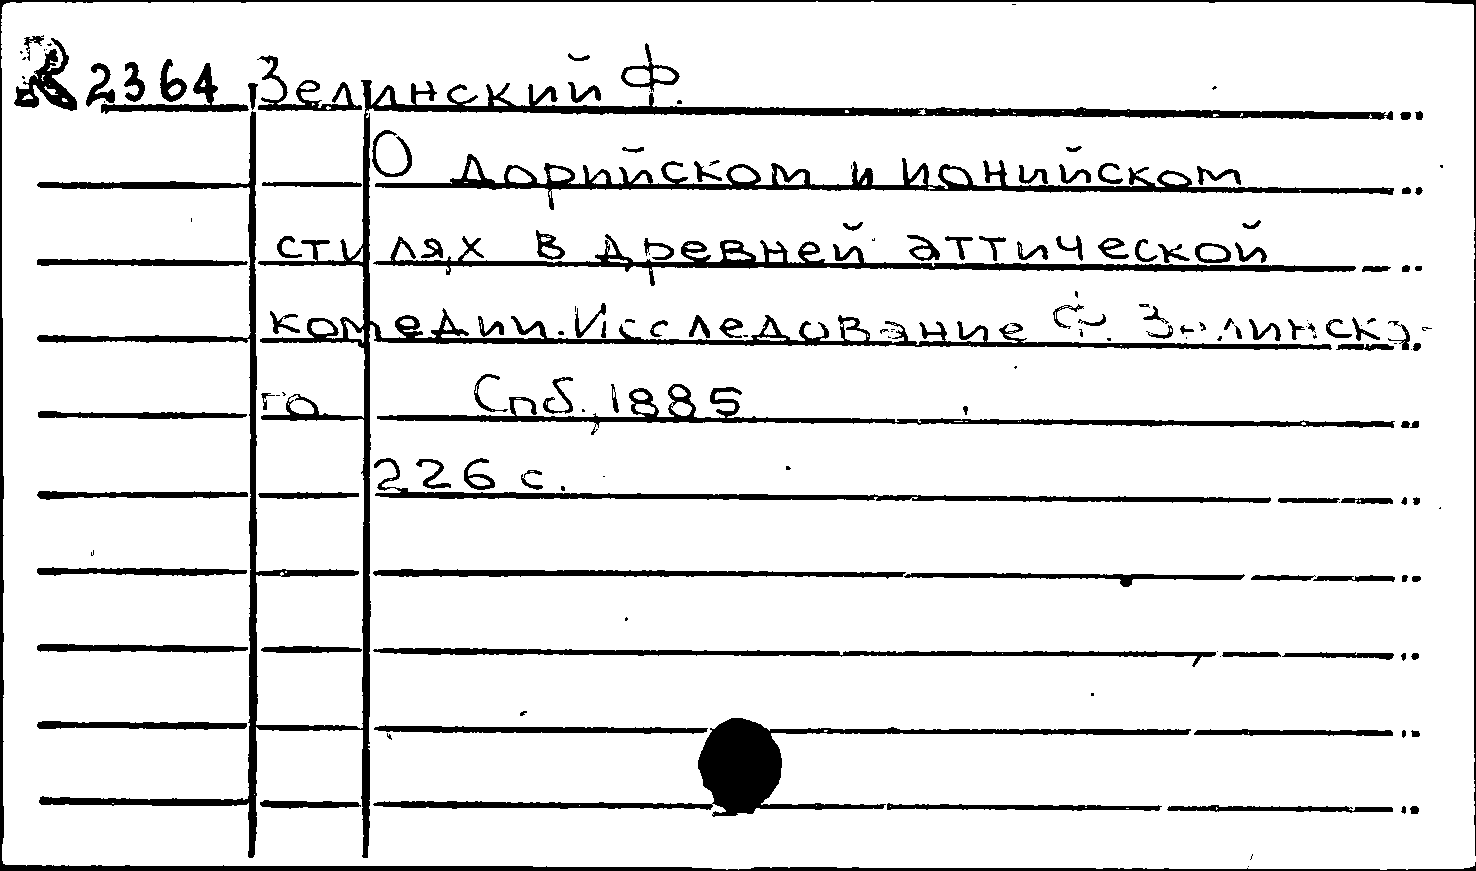 R 2364 Зелинский Ф.
О дорийском и ионийском
стилях в древней аттической
комедии. Исследование Ф. Зелинско-
го Спб., 1885
226 с.